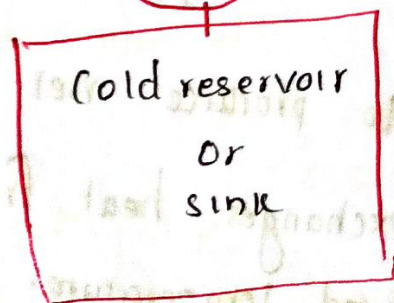 Cold reservoir
Or
sink